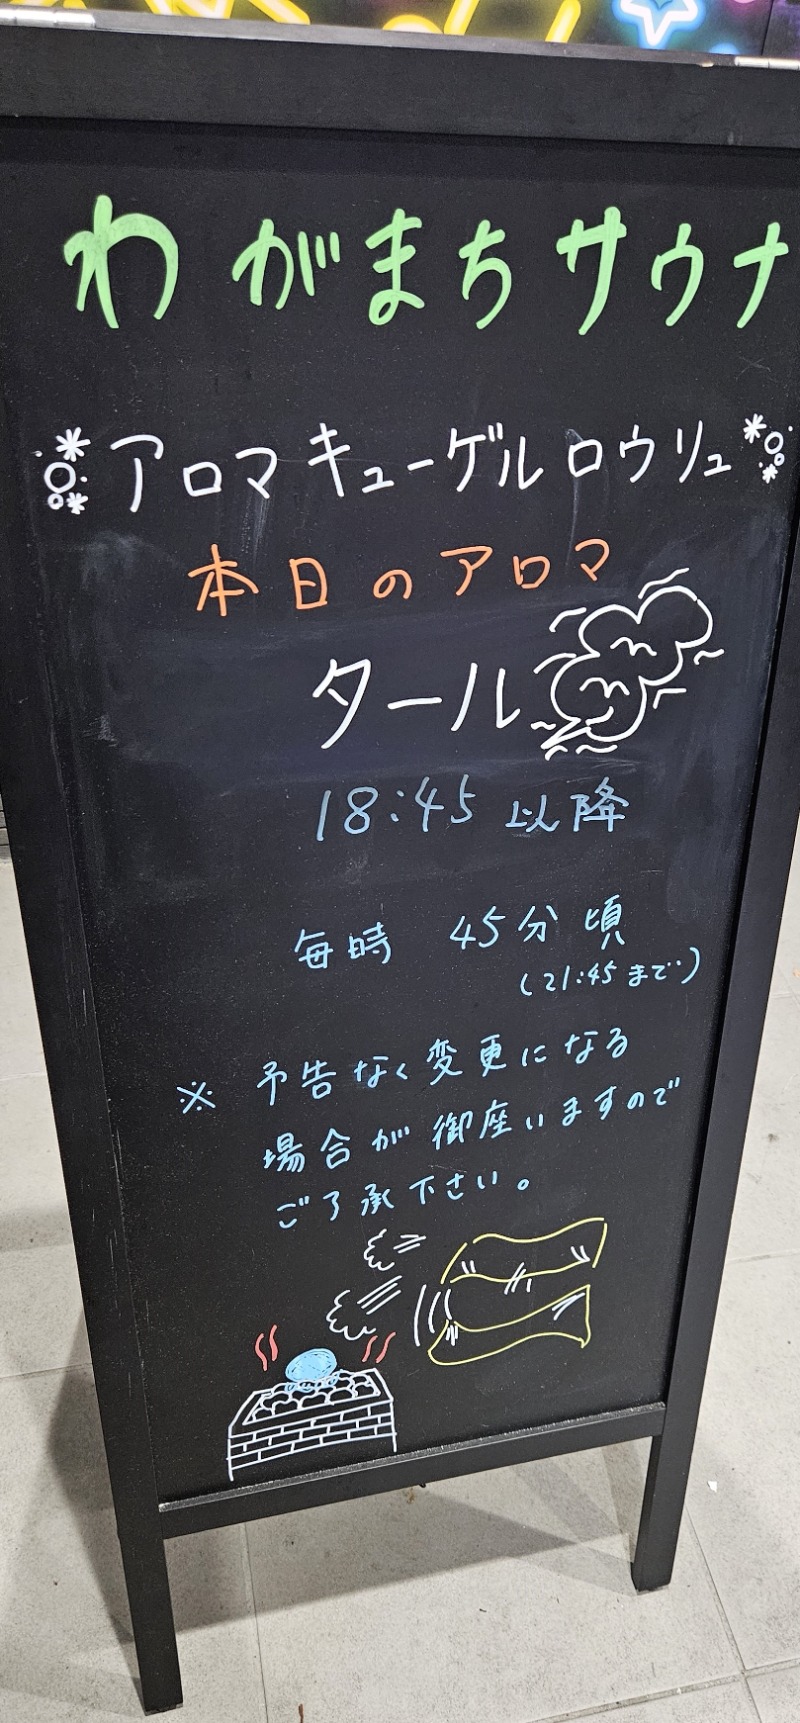 わがまちサウナ
アロマキューゲルロウリュ
本日のアロマ
タール
18:45 以降
毎時 45分頃
(21:45まで)
※ 予告なく変更になる
場合が御座いますので
ご了承下さい。